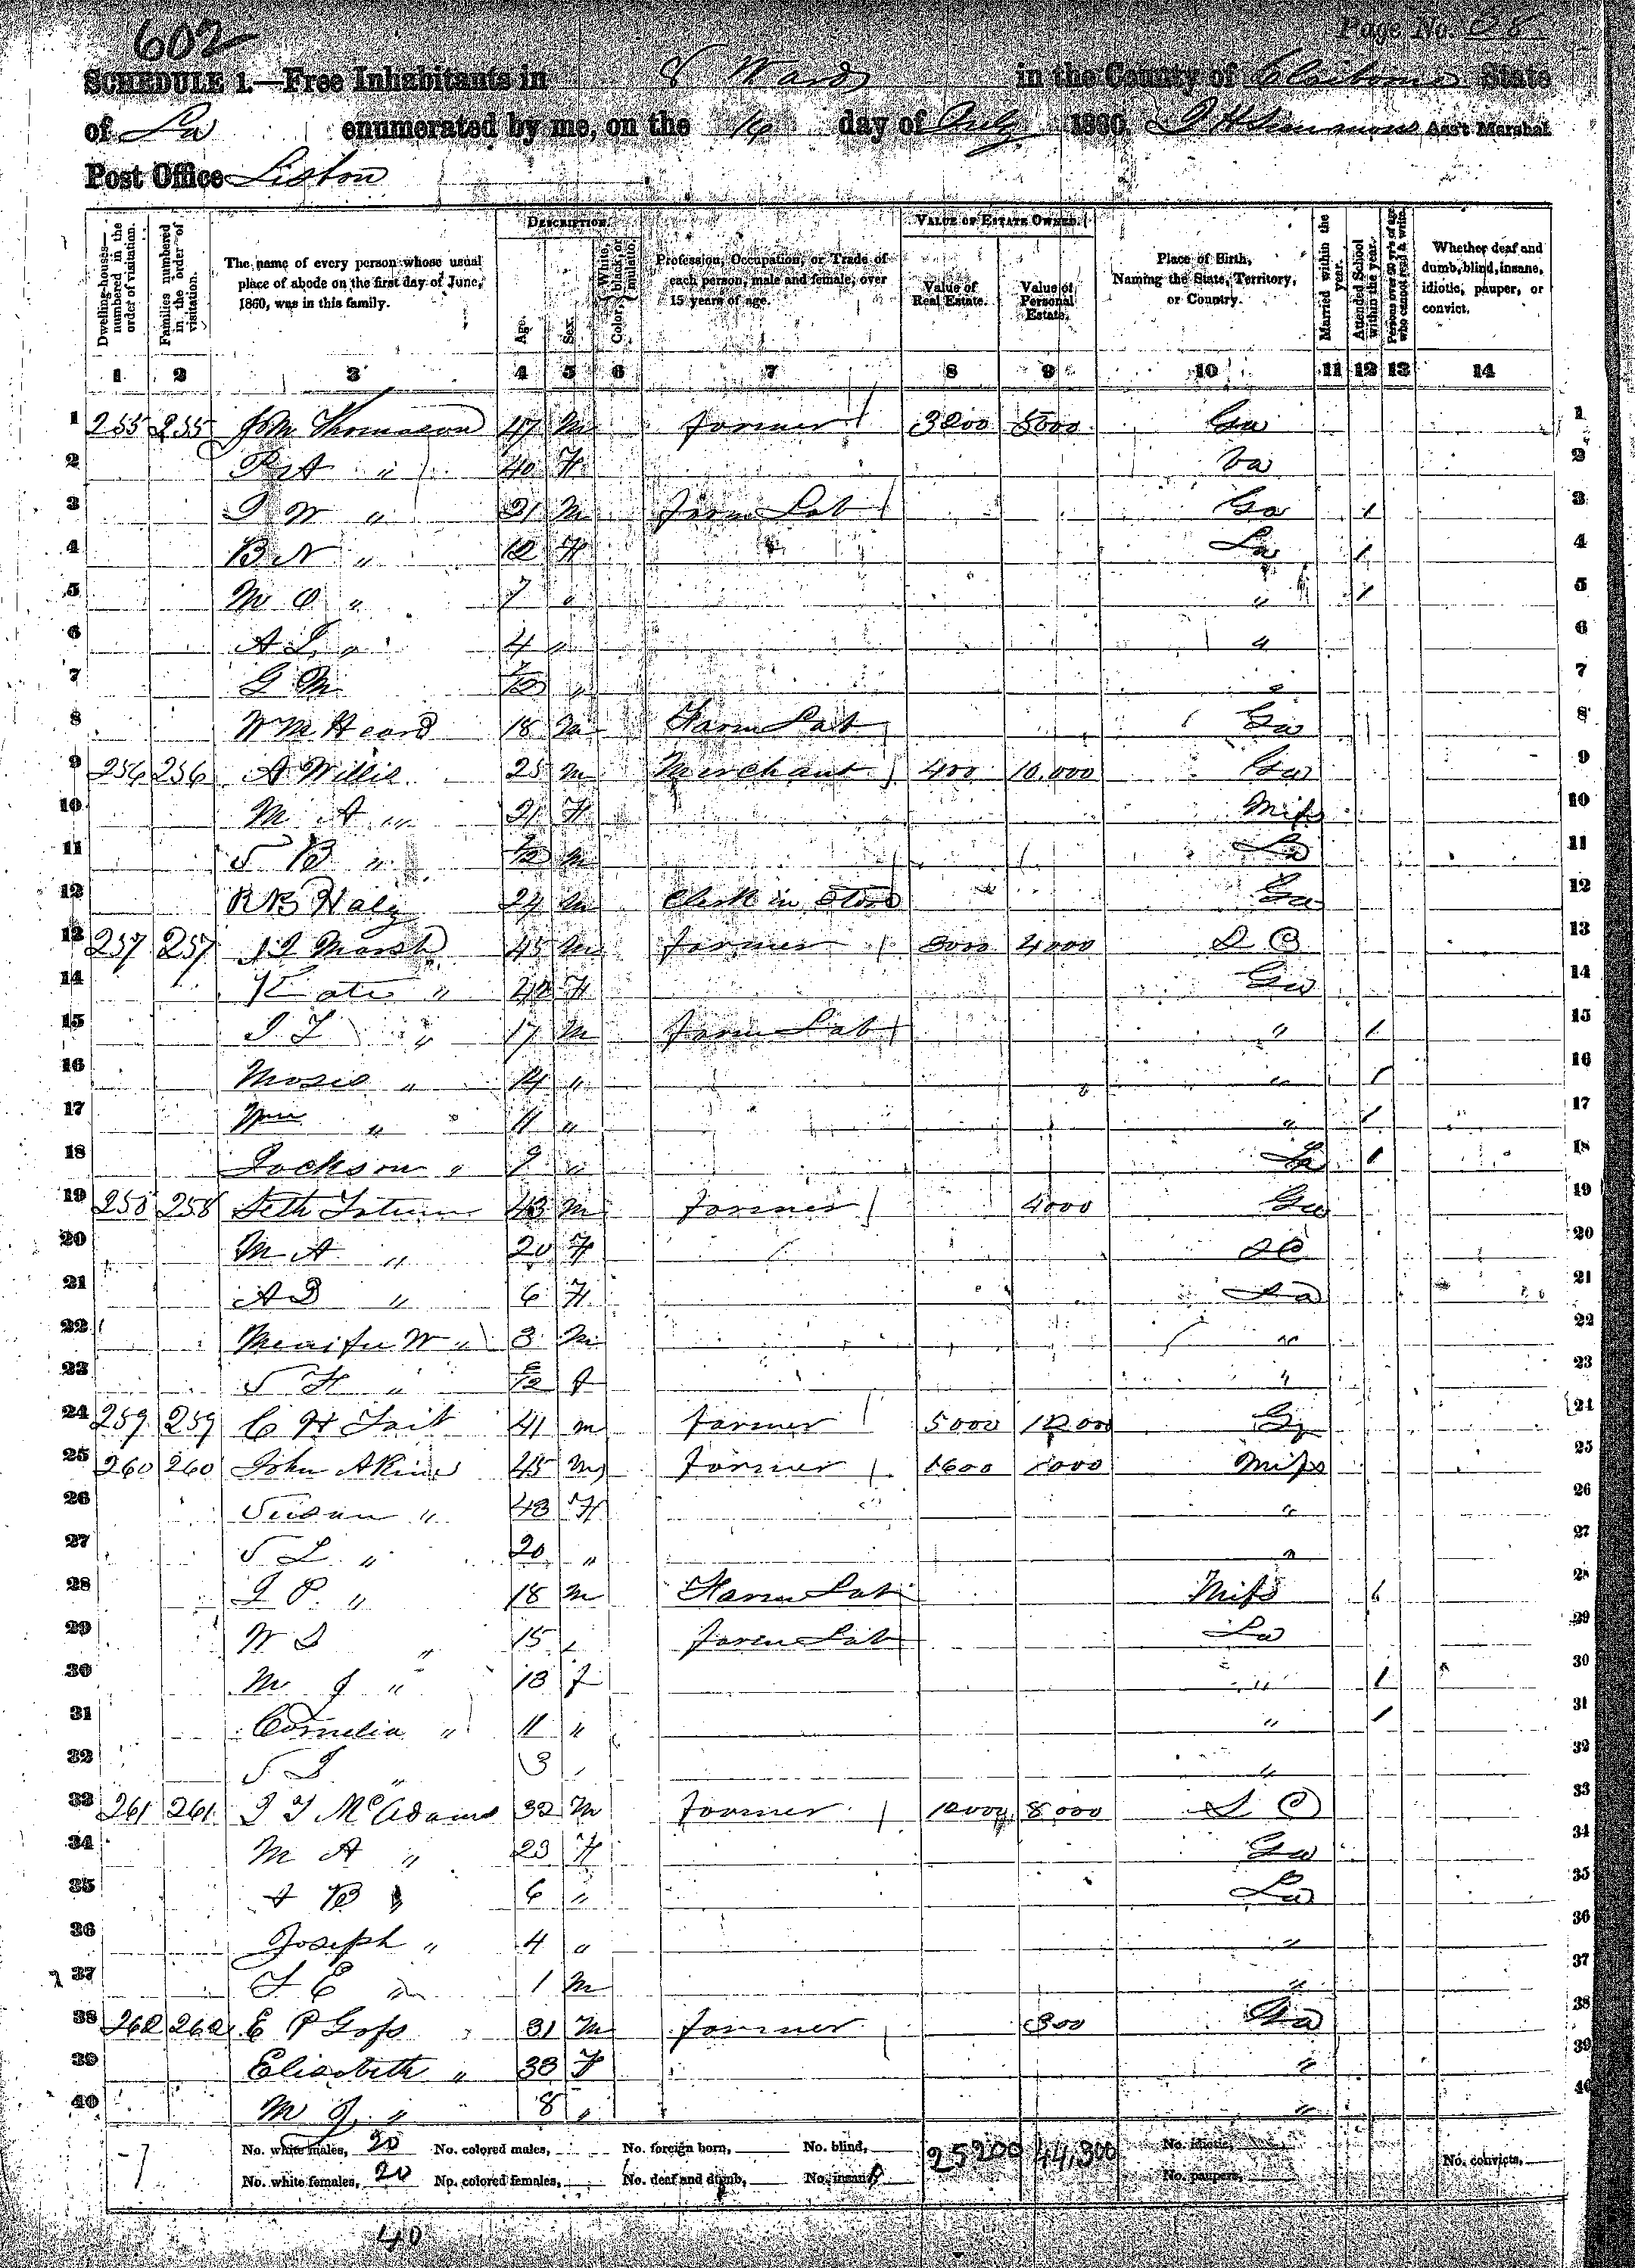 602
Page No. 38
SCHEDULE 1.—Free Inhabitants in 8 Ward in the County of Claiborne State
of La enumerated by me, on the 16 day of July 1860. Ass't Marshal.
Post Office Lisbon
Dwelling-houses—numbered in the order of visitation.
Families numbered in the order of visitation.
The name of every person whose usual place of abode on the first day of June, 1860, was in this family.
DESCRIPTION.
Age.
Sex.
Color, White, black, or mulatto.
Profession, Occupation, or Trade of each person, male and female, over 15 years of age.
VALUE OF ESTATE OWNED.
Value of Real Estate.
Value of Personal Estate.
Place of Birth, Naming the State, Territory, or Country.
Married within the year.
Attended School within the year.
Persons over 20 y'rs of age who cannot read & write.
Whether deaf and dumb, blind, insane, idiotic, pauper, or convict.
1 2 3 4 5 6 7 8 9 10 11 12 13 14
1 255 255 Thomason 47 M Farmer 3200 5000 Ga 1
2 P A " 40 F Va 2
3 J W " 21 M Farm Lab Ga / 3
4 B N " 12 F La / 4
5 M O " 7 " " / 5
6 A J " 4 " " 6
7 G M /12 " " 7
8 W M Heard 18 M Farm Lab Ga 8
9 256 256 A Willis 25 M Merchant 400 10,000 Ga 9
10 M A " 21 F Miss 10
11 S B " /12 M La 11
12 R B 24 M Clerk in Store Ga 12
13 257 257 Marsh 45 M Farmer 3000 4000 S C 13
14 Kate " 40 F Ga 14
15 J L " 17 M Farm Lab " / 15
16 Mosie " 14 " " / 16
17 Wm " 11 " " / 17
18 Jackson " 9 " La / 18
19 258 258 Seth Tatum 43 M Farmer 4000 Ga 19
20 M A " 20 F S C 20
21 A B " 6 F La 21
22 W " 3 M " 22
23 S H " /12 f " 23
24 259 259 C H Tait 41 m Farmer 5000 12000 Ga 24
25 260 260 John Akins 45 M Farmer 1600 1000 Miss 25
26 Susan " 43 F " 26
27 S L " 20 " " 27
28 J P " 18 M Farm Lab Miss / 28
29 W S " 15 " Farm Lab La 29
30 M J " 13 f " / 30
31 Cornelia " 11 " " / 31
32 S J " 3 " " 32
33 261 261 J T McAdams 32 M Farmer 12000 8000 S C 33
34 M A " 23 F Ga 34
35 B " 6 " La 35
36 Joseph " 4 " " 36
37 E " 1 M " 37
38 262 262 E P Goss 31 M Farmer 300 Ga 38
39 Elisabeth " 33 F " 39
40 M J " 8 " " 40
No. white males, 20 No. colored males, No. foreign born, No. blind, 25200 44,300 No. idiotic,
No. white females, 20 No. colored females, No. deaf and dumb, No. insane, No. paupers, No. convicts,
40